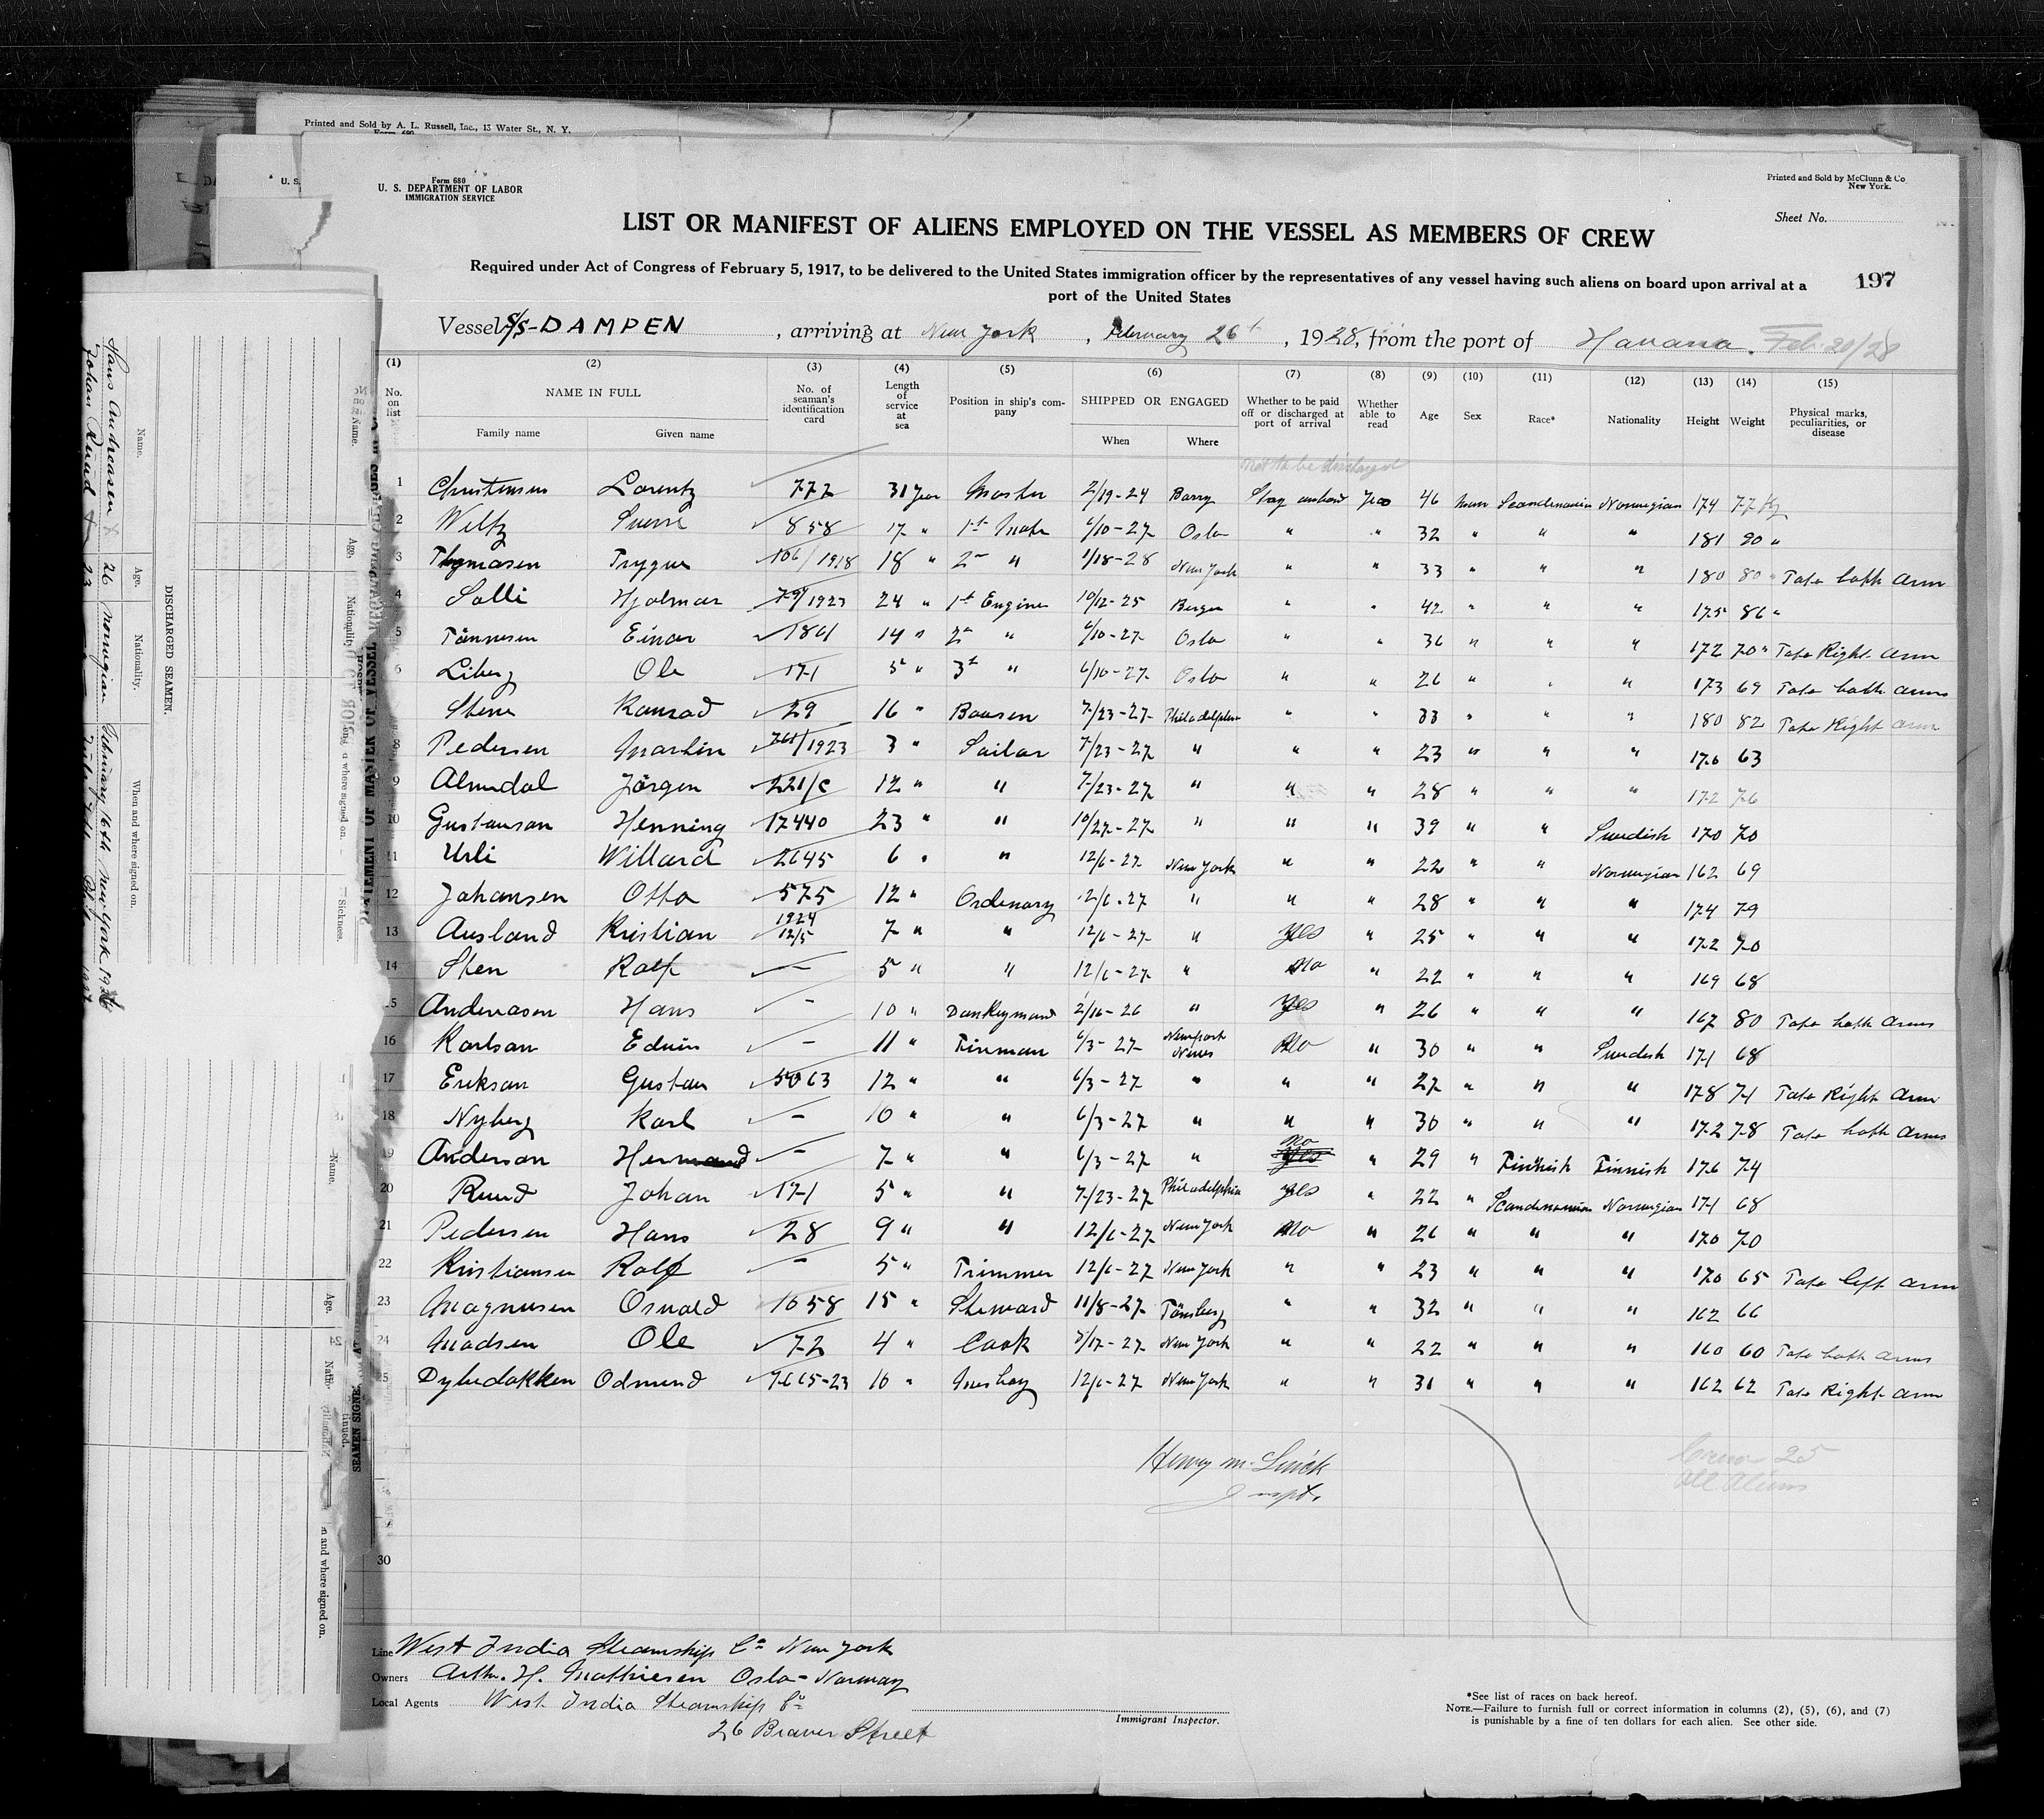 Printed and Sold by A. L. Russell, Inc., 13 Water St., N. Y.
Form 680
U. S. DEPARTMENT OF LABOR
IMMIGRATION SERVICE
Printed and Sold by McClunn & Co
New York.
Sheet No.
LIST OR MANIFEST OF ALIENS EMPLOYED ON THE VESSEL AS MEMBERS OF CREW
Required under Act of Congress of February 5, 1917, to be delivered to the United States immigration officer by the representatives of any vessel having such aliens on board upon arrival at a
port of the United States
197
Vessel S/S-DAMPEN, arriving at New York, February 26th, 1928, from the port of Havana. Feb. 20/28
(1) (2) (3) (4) (5) (6) (7) (8) (9) (10) (11) (12) (13) (14) (15)
No. on list NAME IN FULL Family name Given name No. of seaman's identification card Length of service at sea Position in ship's company SHIPPED OR ENGAGED When Where Whether to be paid off or discharged at port of arrival Whether able to read Age Sex Race* Nationality Height Weight Physical marks, peculiarities, or disease
not to be discharged
1 Christensen Lorentz 772 31 year Master 2/19-24 Barry Stay onboard Yes 46 Man Scandinavian Norwegian 174 77 Kg
2 Weltz 858 17 " 1st Mate 6/10-27 Oslo " " 32 " " " 181 90 "
3 Thomasen Trygve 106/1918 18 " 2nd " 1/18-28 New York " " 33 " " " 180 80 " Tato both Arm
4 Solli Hjalmar 79/1923 24 " 1st Engineer 10/12-25 Bergen " " 42 " " " 175 86 "
5 Tönnesen Einar 1861 14 " 2nd " 6/10-27 Oslo " " 36 " " " 172 70 " Tato Right Arm
6 Liberg Ole 171 5 " 3rd " 6/10-27 Oslo " " 26 " " " 173 69 Tato both arms
Stene Konrad 29 16 " Boasen 7/23-27 Philadelphia " " 33 " " " 180 82 Tato Right arm
8 Pedersen Martin 761/1923 3 " Sailor 7/23-27 " " " 23 " " " 170 63
9 Almedal Jörgen 221/C 12 " " 7/23-27 " " " 28 " " " 172 76
10 Gustavson Henning 17440 23 " " 10/27-27 " " " 39 " " Swedish 170 70
11 Urli Willard 2645 6 " " 12/6-27 New York " " 22 " " Norwegian 162 69
12 Johansen Otto 575 12 " Ordenary 12/6-27 " " " 28 " " " 174 79
13 Ausland Kristian 1924 12/5 7 " " 12/6-27 " Yes " 25 " " " 172 70
14 Sten Rolf - 5 " " 12/6-27 " No " 22 " " " 169 68
15 Andreasen Hans - 10 " Donkeymand 2/16-26 " Yes " 26 " " " 167 80 Tato both Arms
16 Karlson Edvin - 11 " Fireman 6/3-27 Newport News No " 30 " " Swedish 171 68
17 Erikson Gustav 5063 12 " " 6/3-27 " " " 27 " " " 178 71 Tato Right Arm
18 Nyberg Karl - 10 " " 6/3-27 " " " 30 " " " 172 78 Tato both Arms
19 Anderson Hermand - 7 " " 6/3-27 " No Yes " 29 " Finnish Finnish 176 74
20 Ruud Johan 171 5 " " 7/23-27 Philadelphia Yes " 22 " Scandinavian Norwegian 171 68
21 Pedersen Hans 28 9 " " 12/6-27 New York No " 26 " " " 170 70
22 Kristiansen Rolf - 5 " Trimmer 12/6-27 New York " " 23 " " " 170 65 Tato left Arm
23 Magnusen Osvald 1658 15 " Steward 11/8-27 Tönsberg " " 32 " " " 162 66
24 Madsen Ole 72 4 " Cook 5/17-27 New York " " 22 " " " 160 60 Tato both arms
25 Dybedokken Odmund 7665-23 16 " Messboy 12/6-27 New York " " 31 " " " 162 62 Tato Right Arm
Henry M.
Inspt.
Crew 25
All Aliens
30
Line West India Steamship Co New York
Owners Arth. H. Mathiesen Oslo-Norway
Local Agents West India Steamship Co
26 Beaver Street
Immigrant Inspector.
*See list of races on back hereof.
NOTE.—Failure to furnish full or correct information in columns (2), (5), (6), and (7)
is punishable by a fine of ten dollars for each alien. See other side.
DISCHARGED SEAMEN.
Name. Age. Nationality. When and where signed on.
Hans Andreasen 26 Norwegian February 16th New York 1926
Johan Ruud 23